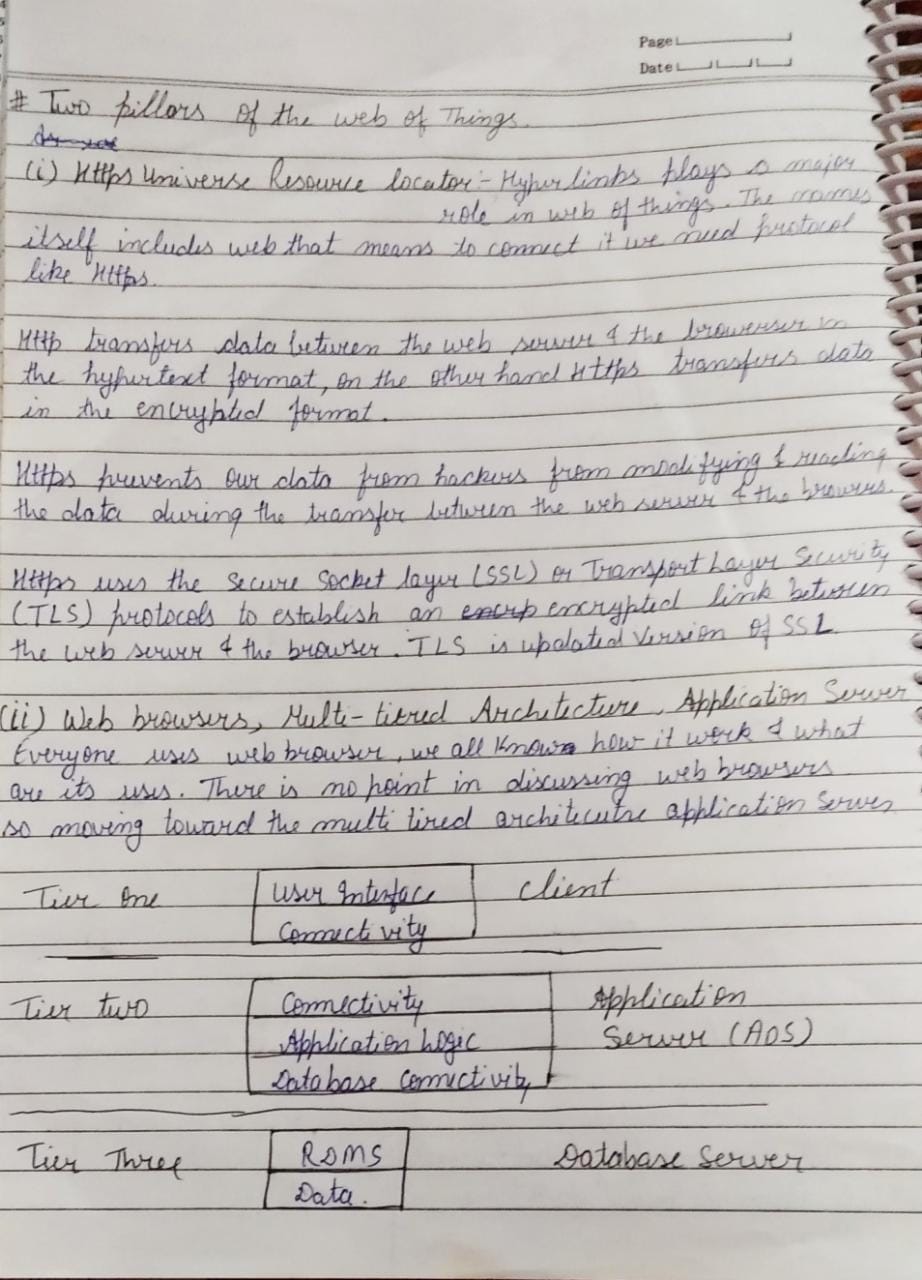 Page
Date
# Two pillars of the web of Things.
(i) Https Universe Resource locator :- Hyper links plays a major
role in web of things. The names
itself includes web that means to connect it we need protocol
like Https.
Http transfers data between the web server & the browerser in
the hypertext format, on the other hand Https transfers data
in the encrypted format.
Https prevents our data from hackers from modifying & reading
the data during the transfer between the web server & the browers.
Https uses the Secure Socket layer (SSL) or Transport Layer Security
(TLS) protocols to establish an encryp encrypted link between
the web server & the browser. TLS is updated Version of SSL
(ii) Web browsers, Multi-tiered Architecture, Application Server
Everyone uses web browser, we all know how it work & what
are its uses. There is no point in discussing web browsers
so moving toward the multi tired architecutre application Server
Tier One User Interface Client
Connectivity
Tier two Connectivity Application
Application Logic Server (AOS)
Database Connectivity
Tier Three RDMS Database Server
Data.